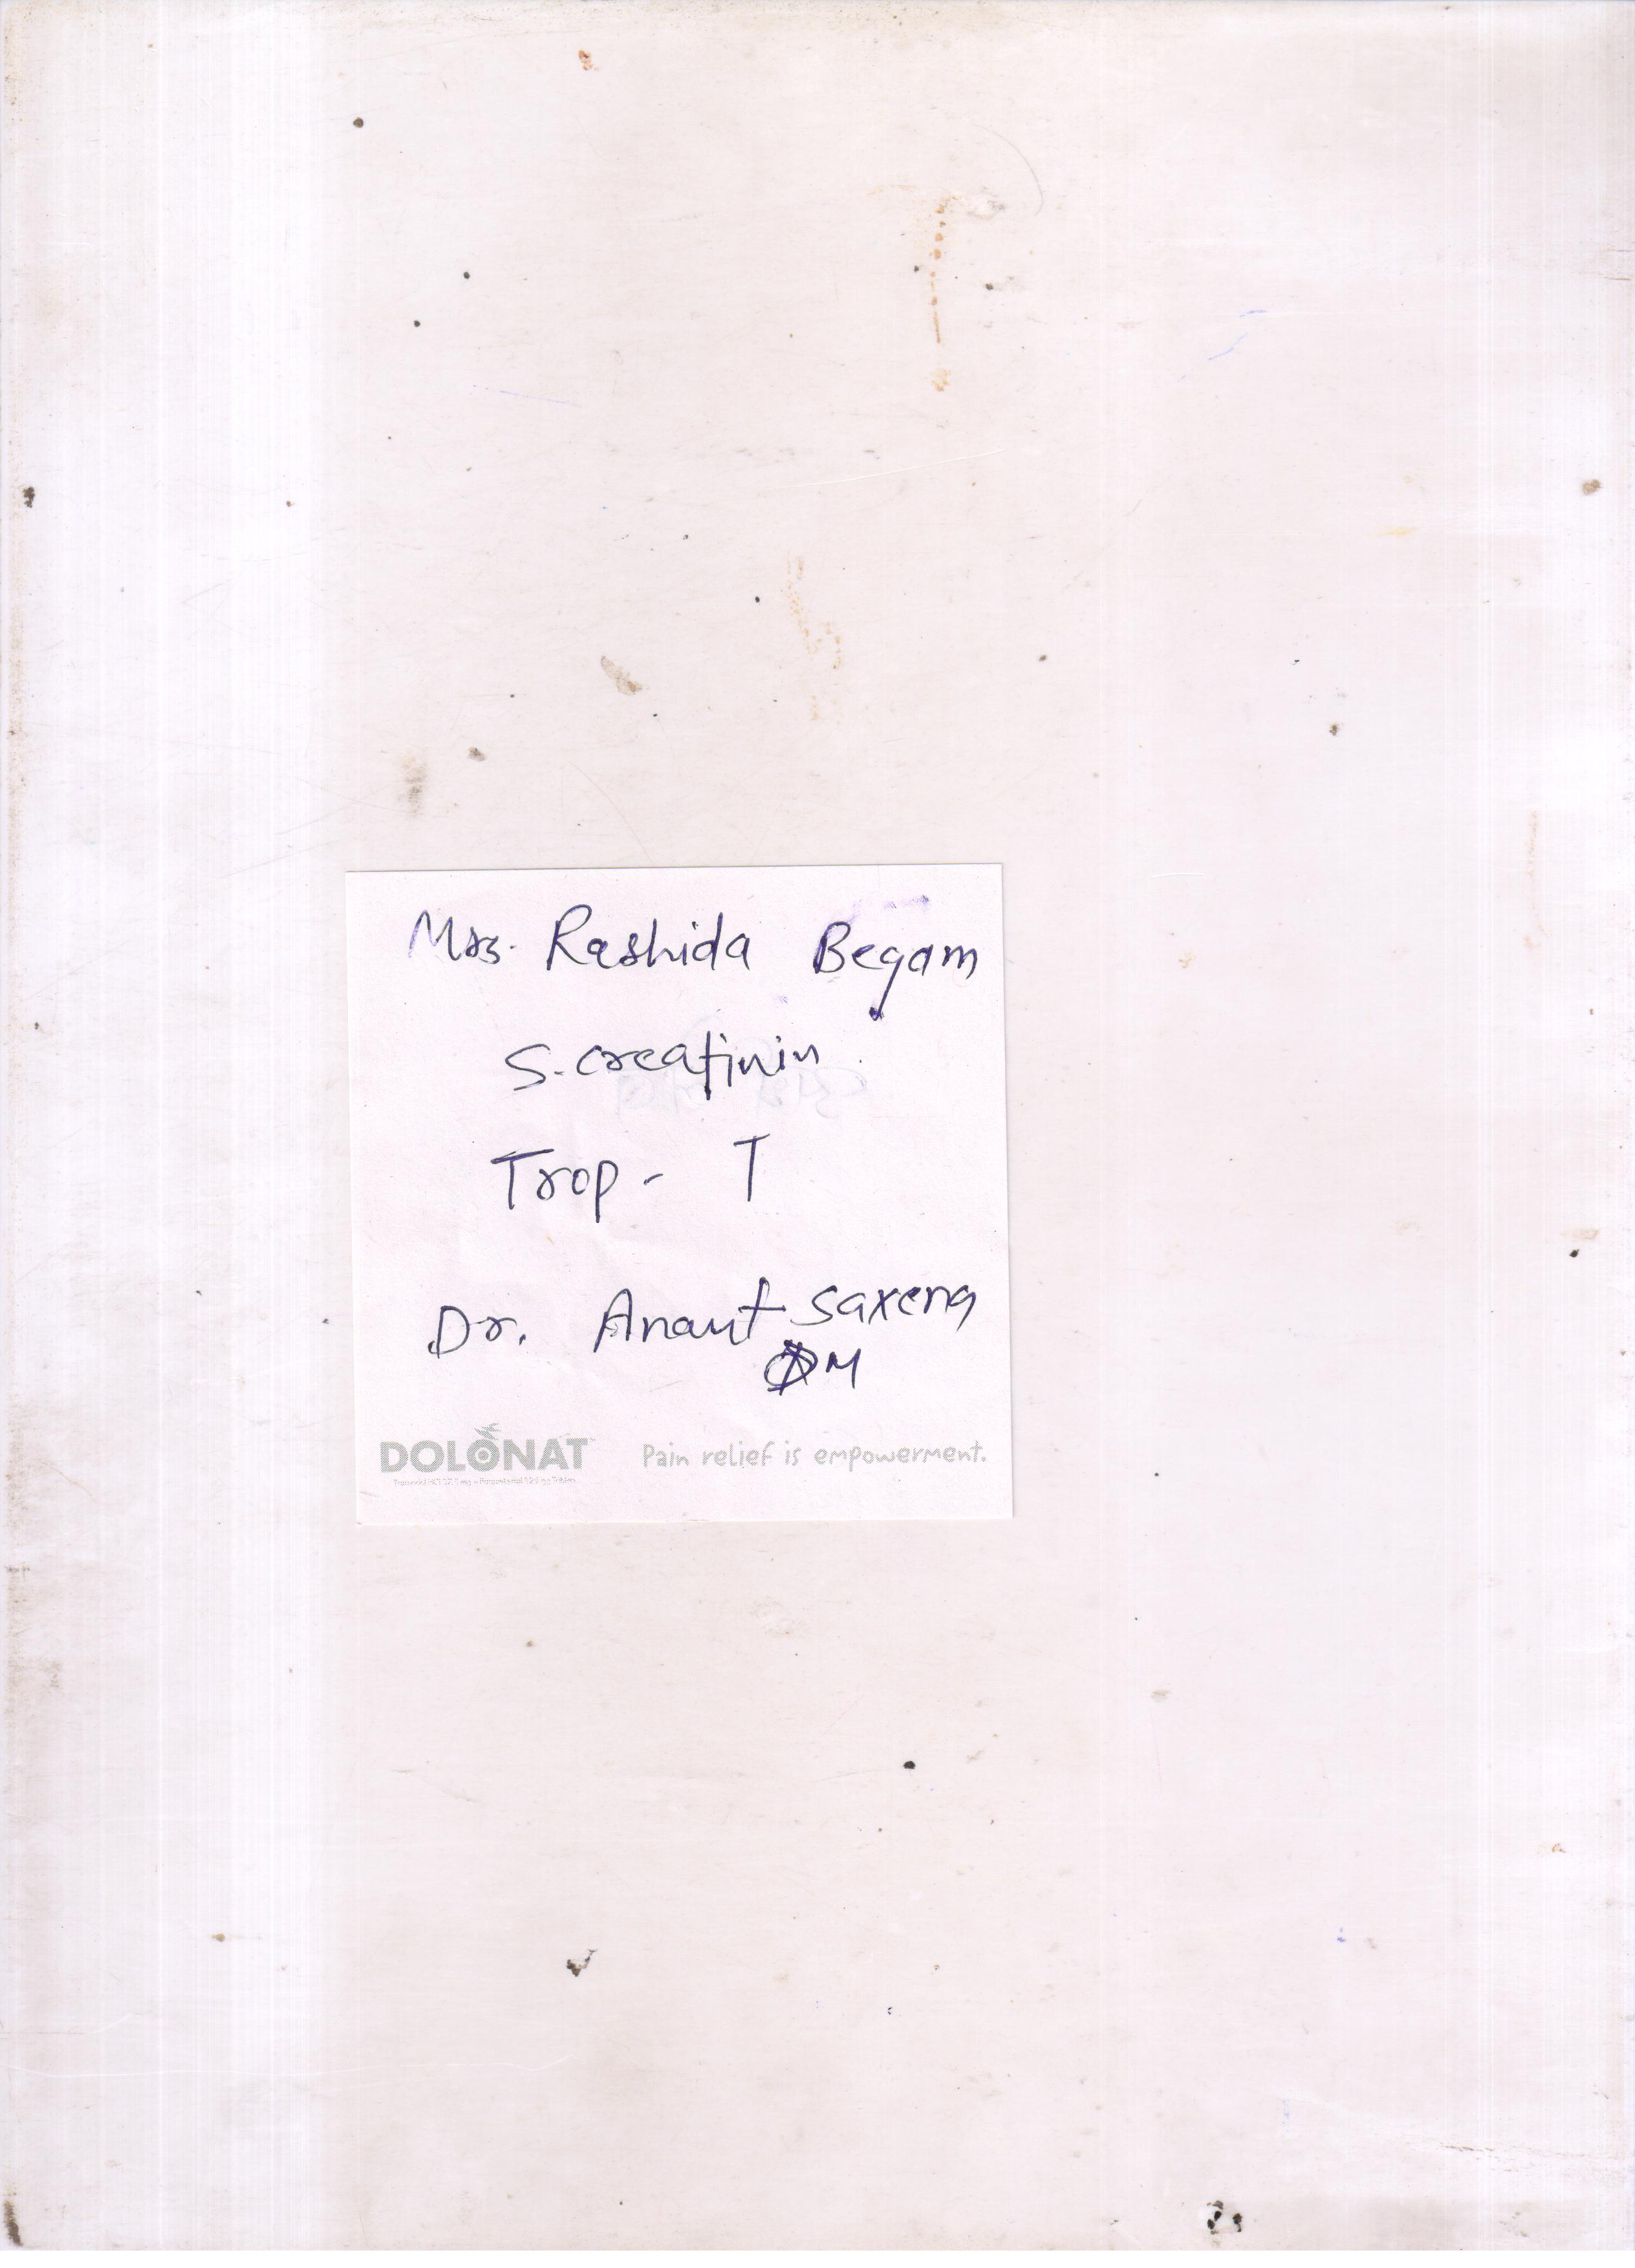 Mrs. Rashida Begam
S. creatinin
Trop - T
Dr. Anant Saxena
DM
DOLONAT Pain relief is empowerment.